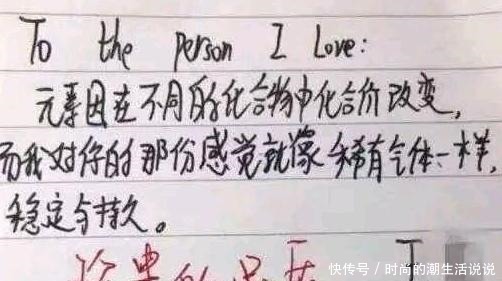 To the person I Love:
元素因在不同的化合物中化合价改变,
而我对你的那份感觉就像稀有气体一样,
稳定与持久。
快传号 / 时尚的潮生活说说